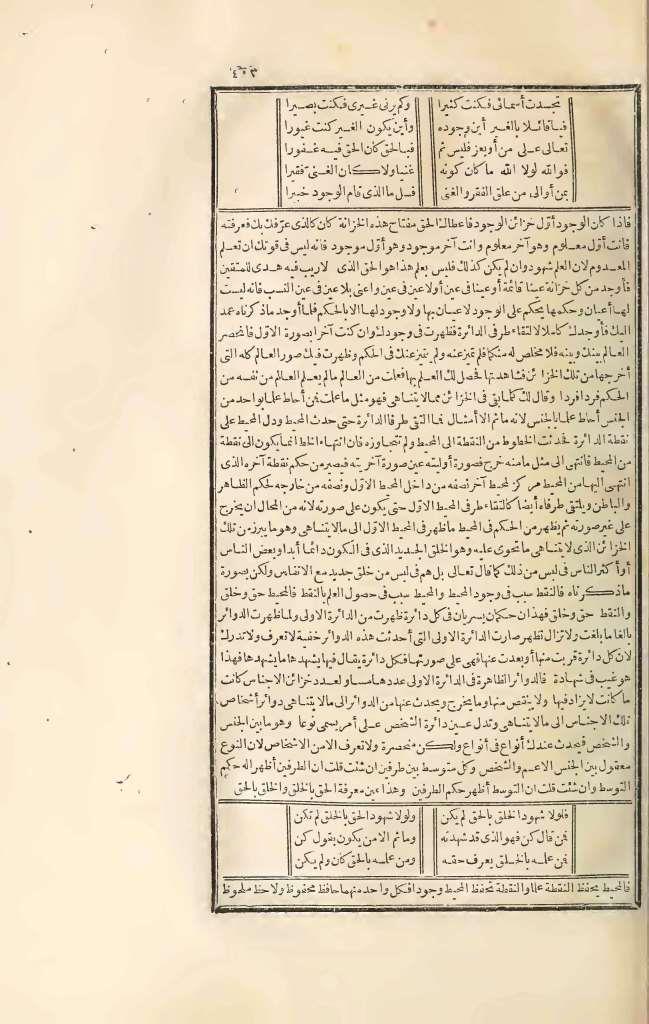 ٤٠٣
تجسدت أسمائى فكنت كثيرا ولم يرنى غيرى فكنت بصيرا
فيا قائلا بالغير أين وجوده وأين يكون الغير كنت غيورا
تعالى على من أو بعز فليس ثم فبالحق كان الحق فيه غفورا
فوالله لولا الله ما كان كونه غنيا ولا كان الغنى فقيرا
بمن أوالى من على الفقر والغنى فسل ما الذى قام الوجود خبيرا
فاذا كان الوجود أول خزائن الوجود فاعطاك الحق مفتاح هذه الخزانة كان كالذى عرّفك بك فعرفته
فانت أول معلوم وهو آخر معلوم وانت آخر موجود وهو أول موجود فانه ليس فى قوتك ان تعلم
المعدوم لان العلم شهود وان لم يكن كذلك فليس بعلم هذا هو الحق الذى لا ريب فيه هدى للمتقين
فأوجد من كل خزانة عينا قائمة أو عينا فى عين أو لا عين فى عين وأعنى بلا عين فى عين النسب فانه ليست
لها أعيان وحكمها يحكم على الوجود لاعيان بها ولا وجود لها الا بالحكم فلما أوجد ما ذكرناه عمد
اليك فأوجدك كاملا لالتقاء طرفى الدائرة فظهرت فى وجودك وان كنت آخرا بصورة الاول فانحصر
العالم بينك وبينه فلا مخلص له منكما فلم تتميز عنه ولم يتميز عنك فى الحكم وظهرت فيك صور العالم كله التى
أخرجها من تلك الخزائن فشاهدتها فحصل لك العلم بها فعلمت من العالم ما لم يعلم العالم من نفسه من
الحكم فردا فردا وقال لك كل ما بقى فى الخزائن مما لا يتناهى فهو مثل ما علمت فمن أحاط علما بواحد من
الجنس أحاط علما بالجنس لانه ما ثم الا أمثال فما التقى طرفا الدائرة حتى حدث المحيط ودل المحيط على
نقطة الدائرة فحدثت الخطوط من النقطة الى المحيط ولم تتجاوزه فان انتهاء الخط انما يكون الى نقطة
من المحيط فانتهى الى مثل ما منه خرج فصورة أوليته عين صورة آخريته فيصير من حكم نقطة آخره الذى
انتهى اليها من المحيط مركز محيط آخر نصفه من داخل المحيط الاول ونصفه من خارجه لحكم الظاهر
والباطن ويلتقى طرفاه أيضا كالتقاء طرفى المحيط الاول حتى يكون على صورته لانه من المحال ان يخرج
على غير صورته ثم يظهر من الحكم فى المحيط ما ظهر فى المحيط الاول الى ما لا يتناهى وهو ما يبرز من تلك
الخزائن الذى لا يتناهى ما تحوى عليه وهو الخلق الجديد الذى فى الكون دائما أبدا وبعض الناس
أو أكثر الناس فى لبس من ذلك كما قال تعالى بل هم فى لبس من خلق جديد مع الانفاس ولكن بصورة
ما ذكرناه فالنقط سبب فى وجود المحيط والمحيط سبب فى حصول العلم بالنقط فالمحيط حق وخلق
والنقط حق وخلق فهذان حكمان يسريان فى كل دائرة ظهرت من الدائرة الاولى ولما ظهرت الدوائر
بالغا ما بلغت ولا تزال تظهر صارت الدائرة الاولى التى أحدثت هذه الدوائر خفية لا تعرف ولا تدرك
لان كل دائرة قربت منها أو بعدت عنها فهى على صورتها فكل دائرة يقال فيها يشهدها ما يشهدها فهذا
هو غيب فى شهادة فالدوائر الظاهرة فى الدائرة الاولى عددها مساو لعدد خزائن الاجناس كانت
ما كانت لا يزاد فيها ولا ينقص منها وما يخرج ويحدث عنها من الدوائر الى ما لا يتناهى دوائر أشخاص
تلك الاجناس الى ما لا يتناهى وتدل عين دائرة الشخص على أمر يسمى نوعا وهو ما بين الجنس
والشخص فيحدث عندك أنواع فى أنواع ولكن منحصرة ولا تعرف الا من الاشخاص لان النوع
معقول بين الجنس الاعم والشخص وكل متوسط بين طرفين ان شئت قلت ان الطرفين أظهرا له حكم
التوسط وان شئت قلت ان التوسط أظهر حكم الطرفين وهذا عين معرفة الحق بالخلق والخلق بالحق
فلولا شهود الخلق بالحق لم يكن ولولا شهود الحق بالخلق لم تكن
فمن قال كن فهو الذى قد شهدته وما ثم الا من يكون بقول كن
فمن علمه بالخلق يعرف حقه ومن علمه بالحق كان ولم يكن
فالمحيط يحفظ النقطة علما والنقطة تحفظ المحيط وجودا فكل واحد منهما حافظ محفوظ ولاحظ ملحوظ